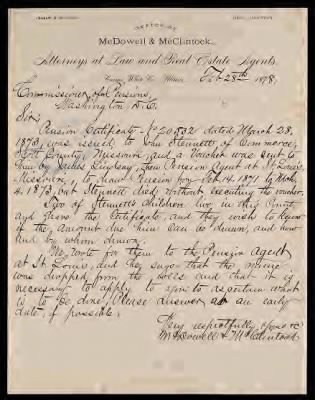 OFFICE OF
McDowell & McClintock,
Attorneys at Law and Real Estate Agents.
Feb 28th 1878.
Commissioner of Pensions,
Washington, D.C.
Sir:
Pension Certificate No 20532 dated March 28,
1873, was issued to John Stennett of Commerce,
Scott County, Missouri, and a Voucher was sent to
him by James Lindsay, then Pension Agent at St Louis
Missouri, to draw Pension from Feb. 14, 1871 to March
4, 1873, but Stennett died without executing the voucher.
Two of Stennetts Children live in this County
and have the Certificate, and they wish to know
if the amount due him can be drawn, and how
and by whom drawn.
We wrote for them to the Pension Agent
at St Louis, and he says that the name
was dropped from the rolls and that it is
necessary to apply to you to ascertain what
is to be done, Please answer at an early
date, if possible.
Very respectfully, yours &c
McDowell & McClintock